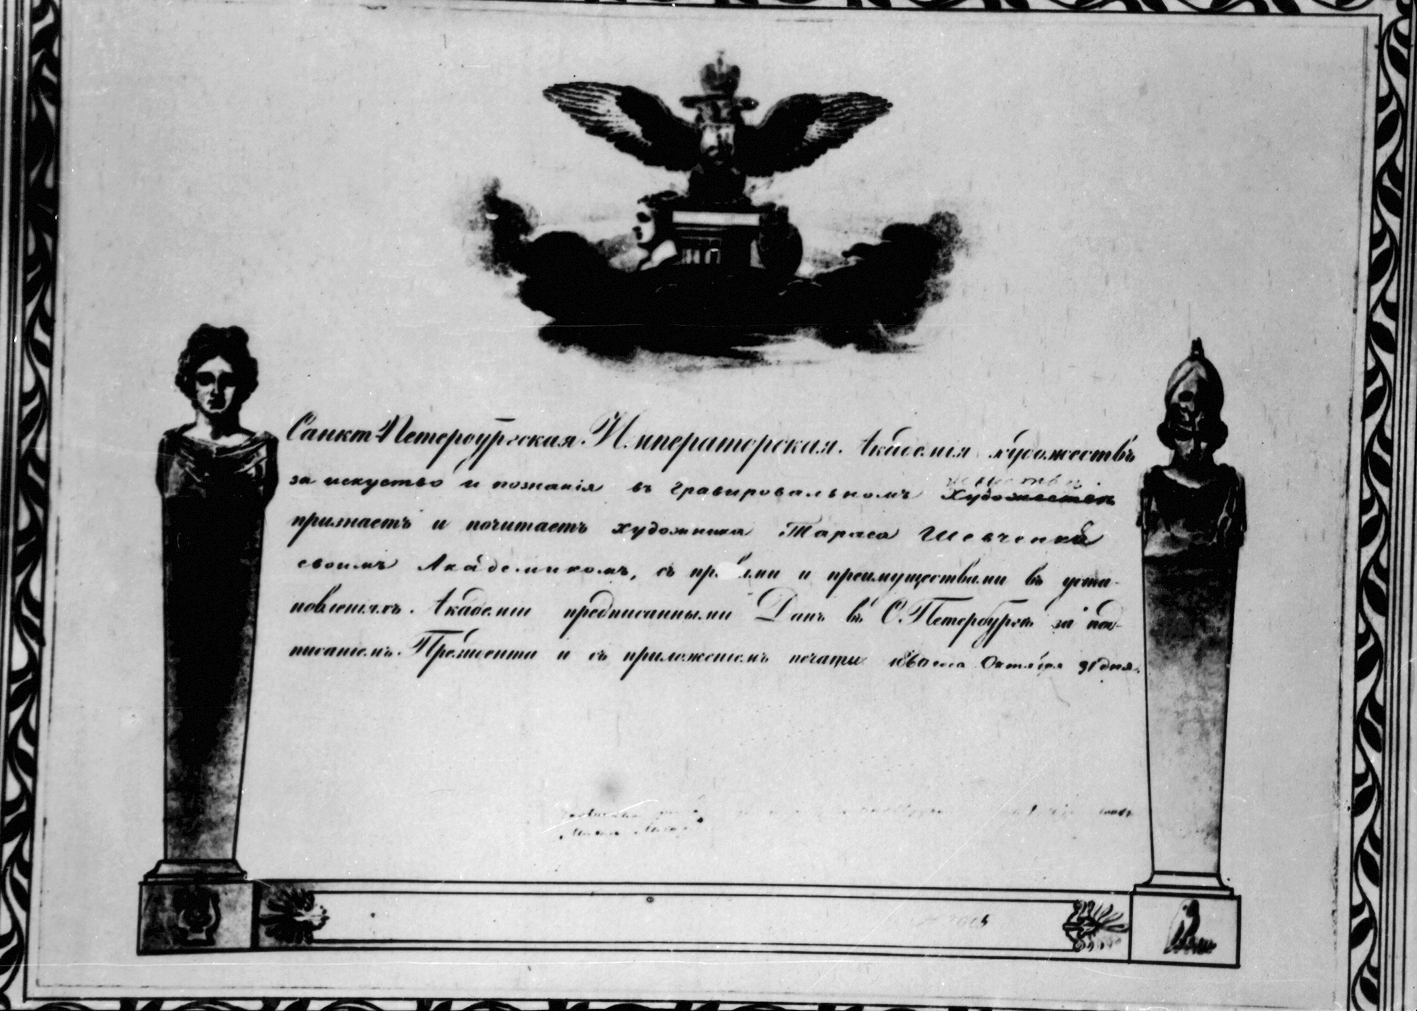 Санктъ Петербургская Императорская Академія художествъ
за искуство и познанія въ гравировальномъ художествѣ
признаетъ и почитаетъ художника Тараса Шевченка
своимъ Академикомъ, съ правами и преимуществами въ уста-
новленіяхъ Академіи предписанными Данъ въ С. Петербургѣ за под-
писаніемъ Президента и съ приложеніемъ печати 1860 года Октября 31 дня.